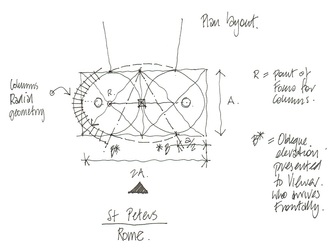 Plan layout.
Columns
Radial
geometry
R.
A.
R = point of
Focus for
Columns.
B*
*B
A/2
2A.
B* = Oblique
elevation
presented
to Viewer.
who arrives
Frontally.
St Peters
Rome.